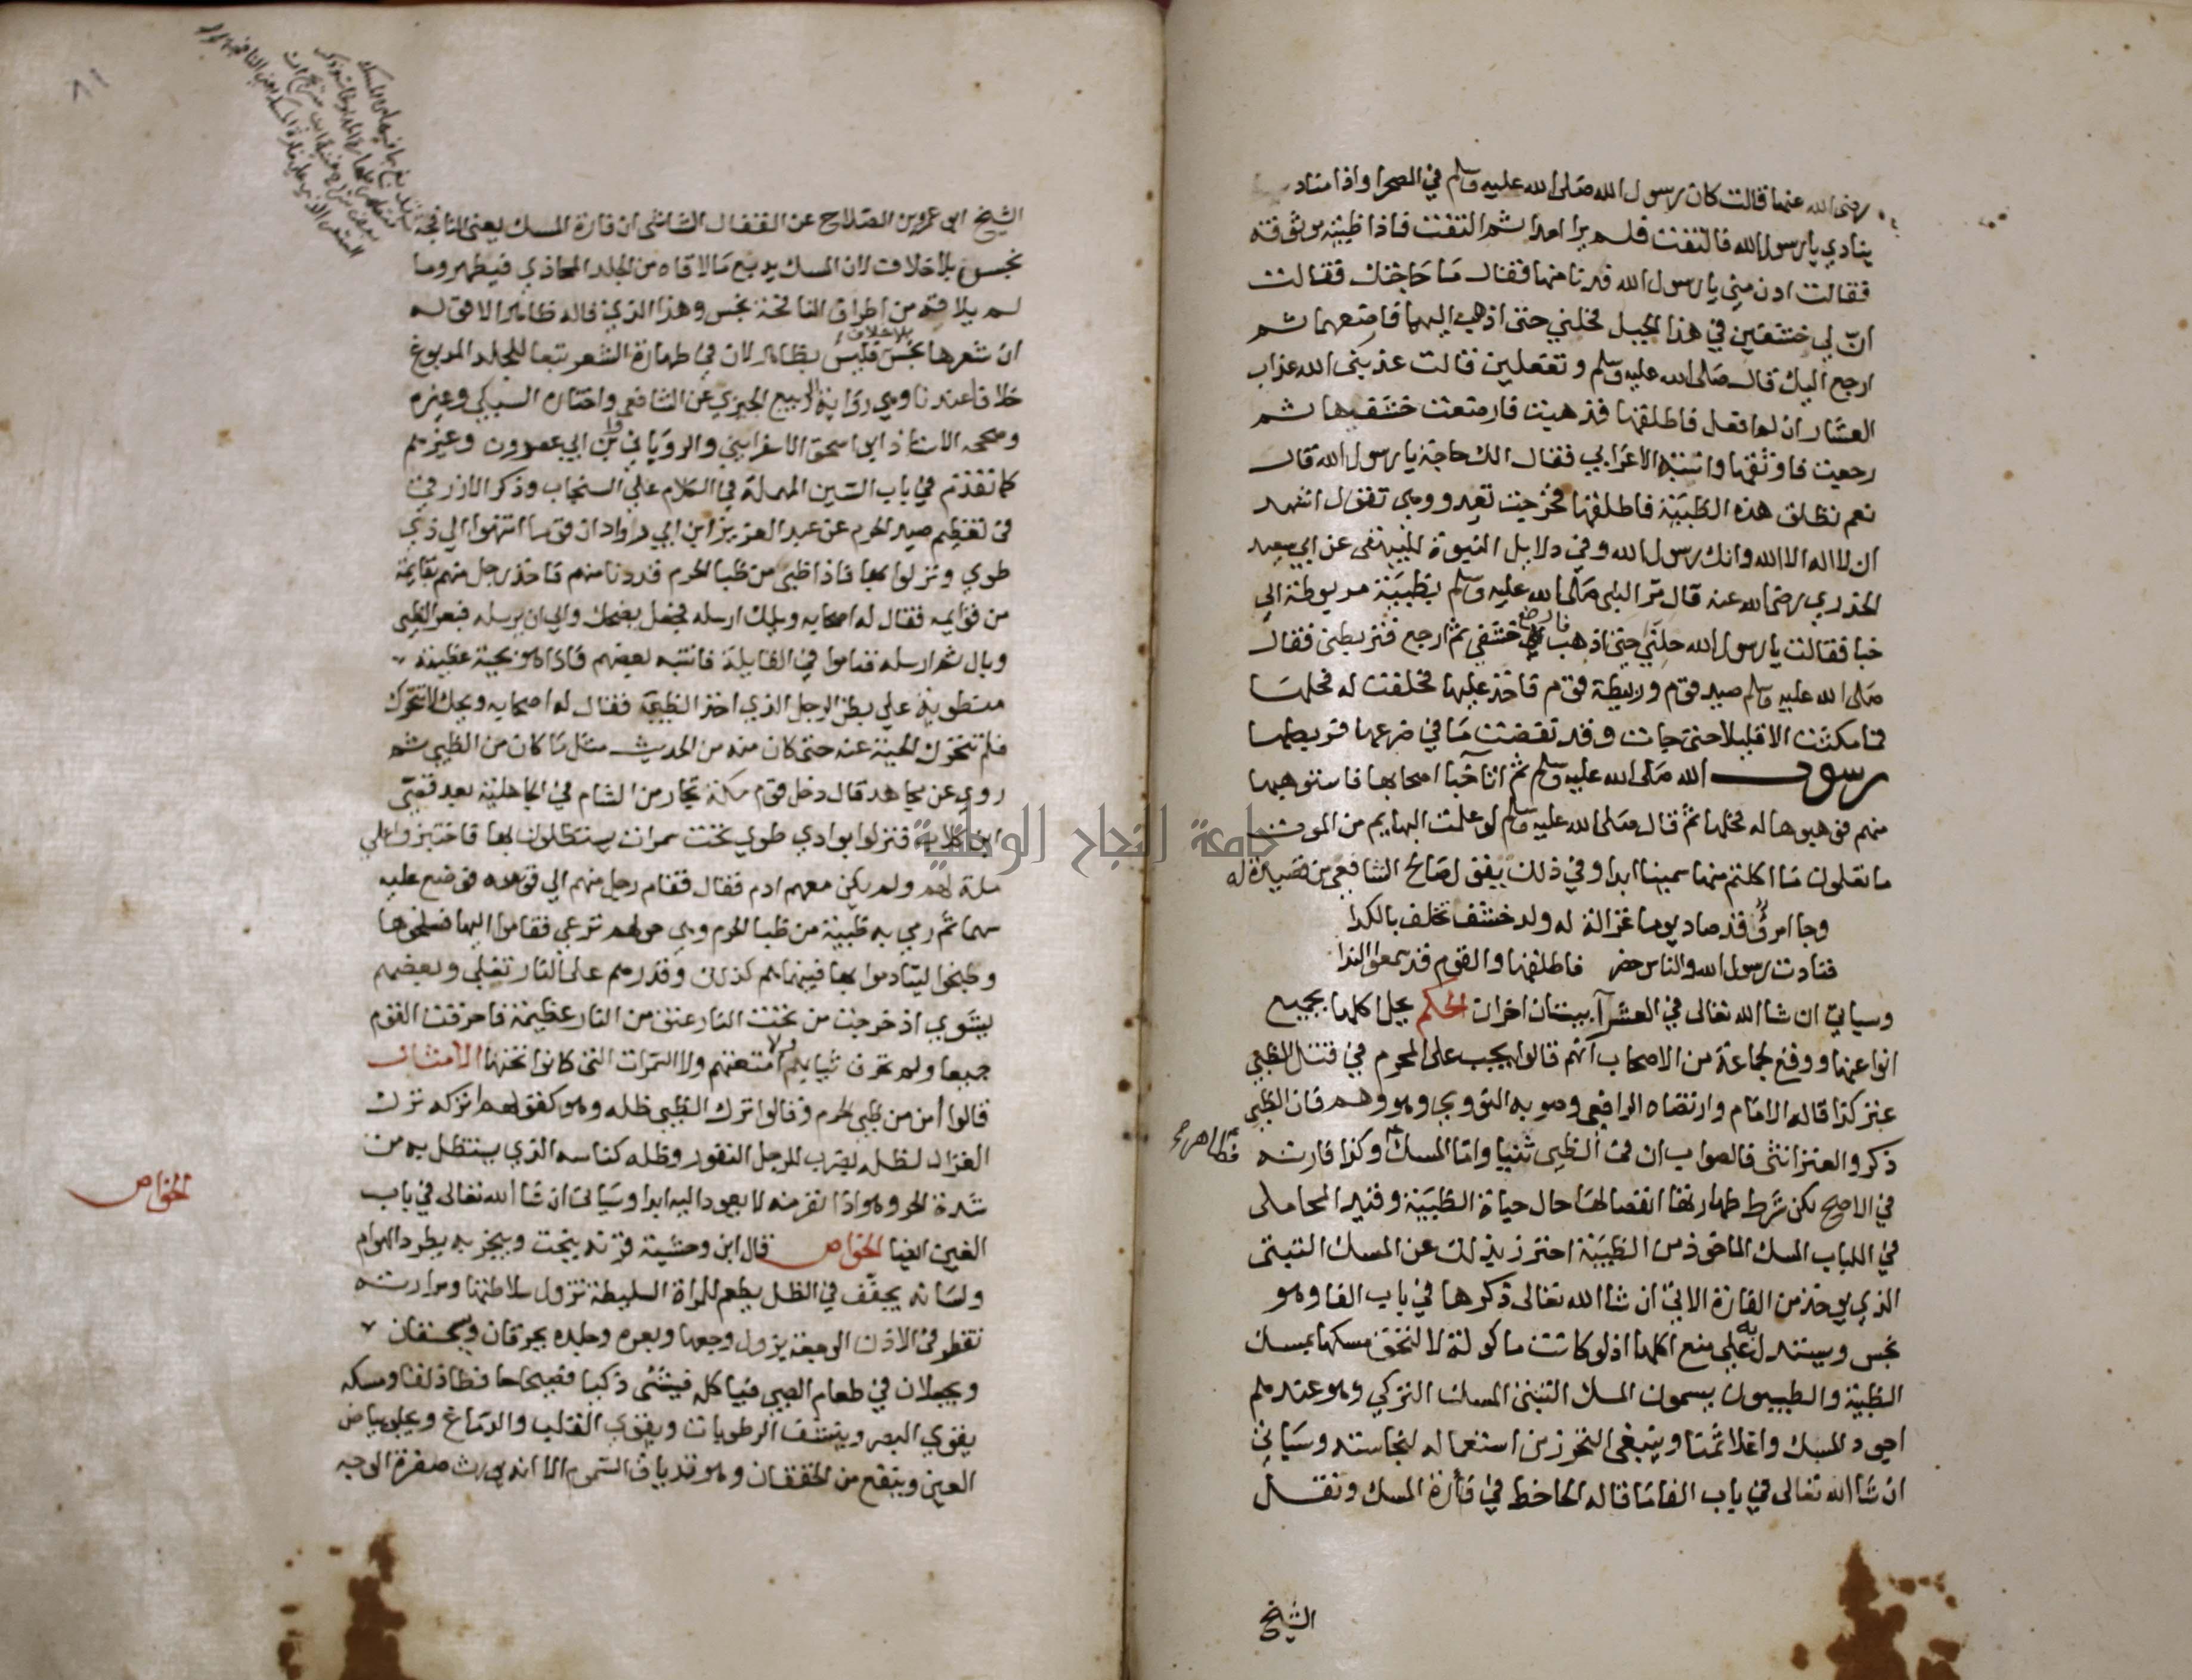 رضى الله عنها قالت كان رسول الله صلى الله عليه وسلم في الصحرا واذا مناد
ينادي يا رسول الله فالتفت فلم يرا احدا ثم التفت فاذا ظبية موثوقة
فقالت ادن مني يا رسول الله فدنا منها فقال ما حاجتك فقالت
ان لي خشفين في هذا الجبل فخلني حتى اذهب اليهما فارضعهما ثم
ارجع اليك قال صلى الله عليه وسلم وتفعلين قالت عذبنى الله عذاب
العشار ان لم افعل فاطلقها فذهبت فارضعت خشفيها ثم
رجعت فاوثقها وانتبه الاعرابي فقال الك حاجة يا رسول الله قال
نعم تطلق هذه الظبية فاطلقها فخرجت تعدو وهي تقول اشهد
ان لا اله الا الله وانك رسول الله وفي دلايل النبوة للبيهقى عن ابي سعيد
الخدري رضى الله عنه قال مر النبى صلى الله عليه وسلم بظبية مربوطة الي
خبا فقالت يا رسول الله حلني حتى اذهب فارضع خشفي ثم ارجع فتربطنى فقال
صلى الله عليه وسلم صيد قوم وربيطة قوم فاخذ عليها فحلفت له فحلها
فما مكثت الا قليلا حتى جات وقد نفضت ما في ضرعها فربطها
رسول الله صلى الله عليه وسلم ثم اتا خبا اصحابها فاستوهبها
منهم فوهبوها له فحلها ثم قال صلى الله عليه وسلم لو علمت البهايم من الموت
ما تعلون ما اكلتم منها سمينا ابدا وفي ذلك يقول صالح الشافعى من قصيدة له
وجا امرؤ قد صاد يوما غزالة له ولد خشف تخلف بالكدا
فنادت رسول الله والناس حضر فاطلقها والقوم قد سمعوا الندا
وسياتي ان شا الله تعالى في العشرآ بيتان اخران الحكم يحل اكلها بجميع
انواعها ووقع لجماعة من الاصحاب انهم قالوا يجب على المحرم في قتل الظبي
عنز كذا قاله الامام وارتضاه الرافعي وصوبه النووي وهو وهم فان الظبي
ذكر والعنز انثى فالصواب ان في الظبى ثنيا واما المسك فطاهر وكذا فارته
في الاصح لكن شرط طهارتها انفصالها حال حياة الظبية وقيد المحاملى
في اللباب المسك الماخوذ من الظبية احترز بذلك عن المسك التبتى
الذي يوخذ من الفارة الاتي ان شا الله تعالى ذكرها في باب الفا وهو
نجس ويستدل به على منع اكلها اذ لو كانت ماكولة لالتحق مسكها بمسك
الظبية والطيبيون يسمون المسك التبتى المسك التركي وهو عندهم
اجود المسك واغلا ثمنا وينبغى التحرز من استعماله لنجاسته وسياتي
ان شا الله تعالى في باب الفا ما قاله الجاحظ في فأرة المسك ونقل
الشيخ
الشيخ ابي عمرو بن الصلاح عن القفال الشاشى ان فارة المسك يعنى النافجة
نجس بلا خلاف لان المسك يدبغ ما لاقاه من الجلد المحاذي فيطهر وما
لم يلاقه من اطراف النافجة نجس وهذا الذي قاله ظاهر الا قوله
ان شعرها نجس بلا خلاف فليس بظاهر لان في طهارة الشعر تبعا للجلد المدبوغ
خلافا عندنا وهي رواية الربيع الجيزي عن الشافعي واختاره السبكي وغيره
وصححه الاستاذ ابو اسحق الاسفرايني والروياني وابن ابي عصرون وغيرهم
كما تقدم في باب السين المهملة في الكلام على السنجاب وذكر الازرقي
في تعظيم صيد الحرم عن عبد العزيز ابن ابي رواد ان قوما انتهوا الي ذي
طوي ونزلوا بها فاذا ظبى من ظبا الحرم قد دنا منهم فاخذ رجل منهم بقايمة
من قوايمه فقال له اصحابه ويلك ارسله فجعل يضحك وابي ان يرسله فبعر الظبى
وبال ثم ارسله فناموا في القايلة فانتبه بعضهم فاذا هو بحية عظيمة
منطوية على بطن الرجل الذي اخذ الظبي فقال له اصحابه ويحك لا تتحرك
فلم تتحرك الحية عنه حتى كان منه من الحدث مثل ما كان من الظبي ثم
روي عن مجاهد قال دخل قوم مكة تجار من الشام في الجاهلية بعد قصي
ابن كلاب فنزلوا بوادي طوي تحت سمرات يستظلون بها فاختبزوا على
ملة لهم ولم يكن معهم ادم فقال فقام رجل منهم الي قوسه فوضع عليه
سهما ثم رمي به ظبية من ظبا الحرم وهي حولهم ترعي فقاموا اليها فسلخوها
وطبخوا ليتادموا بها فبينما هم كذلك وقدرهم على النار تغلي وبعضهم
يشوي اذ خرجت من تحت النار عنق من النار عظيمة فاحرقت القوم
جميعا ولم تحرق ثيابهم ولا امتعتهم ولا السمرات التى كانوا تحتها الامثال
قالوا أمن من ظبي الحرم وقالوا ترك الظبي ظله وهو كقولهم اتركه ترك
الغزال لظله يضرب للرجل النفور وظله كناسه الذي يستظل به من
شدة الحر وهو اذا نفر منه لا يعود اليه ابدا وسياتى ان شا الله تعالى في باب
الغين ايضا الخواص قال ابن وحشية قرنه ينحت ويبخر به يطرد الهوام
ولسانه يجفف في الظل يطعم للمراة السليطة تزول سلاطتها ومرارته
تقطر في الاذن الوجعة يزول وجعها وبعره وجلده يحرقان ويسحقان
ويجعلان في طعام الصبي فياكله فينشى ذكيا فصيحا حافظا ذلقا ومسكه
يقوي البصر وينشف الرطوبات ويقوي القلب والدماغ ويجلى بياض
العين وينفع من الخفقان وهو ترياق السموم الا انه يورث صفرة الوجه
الخواص
جامعة النجاح الوطنية